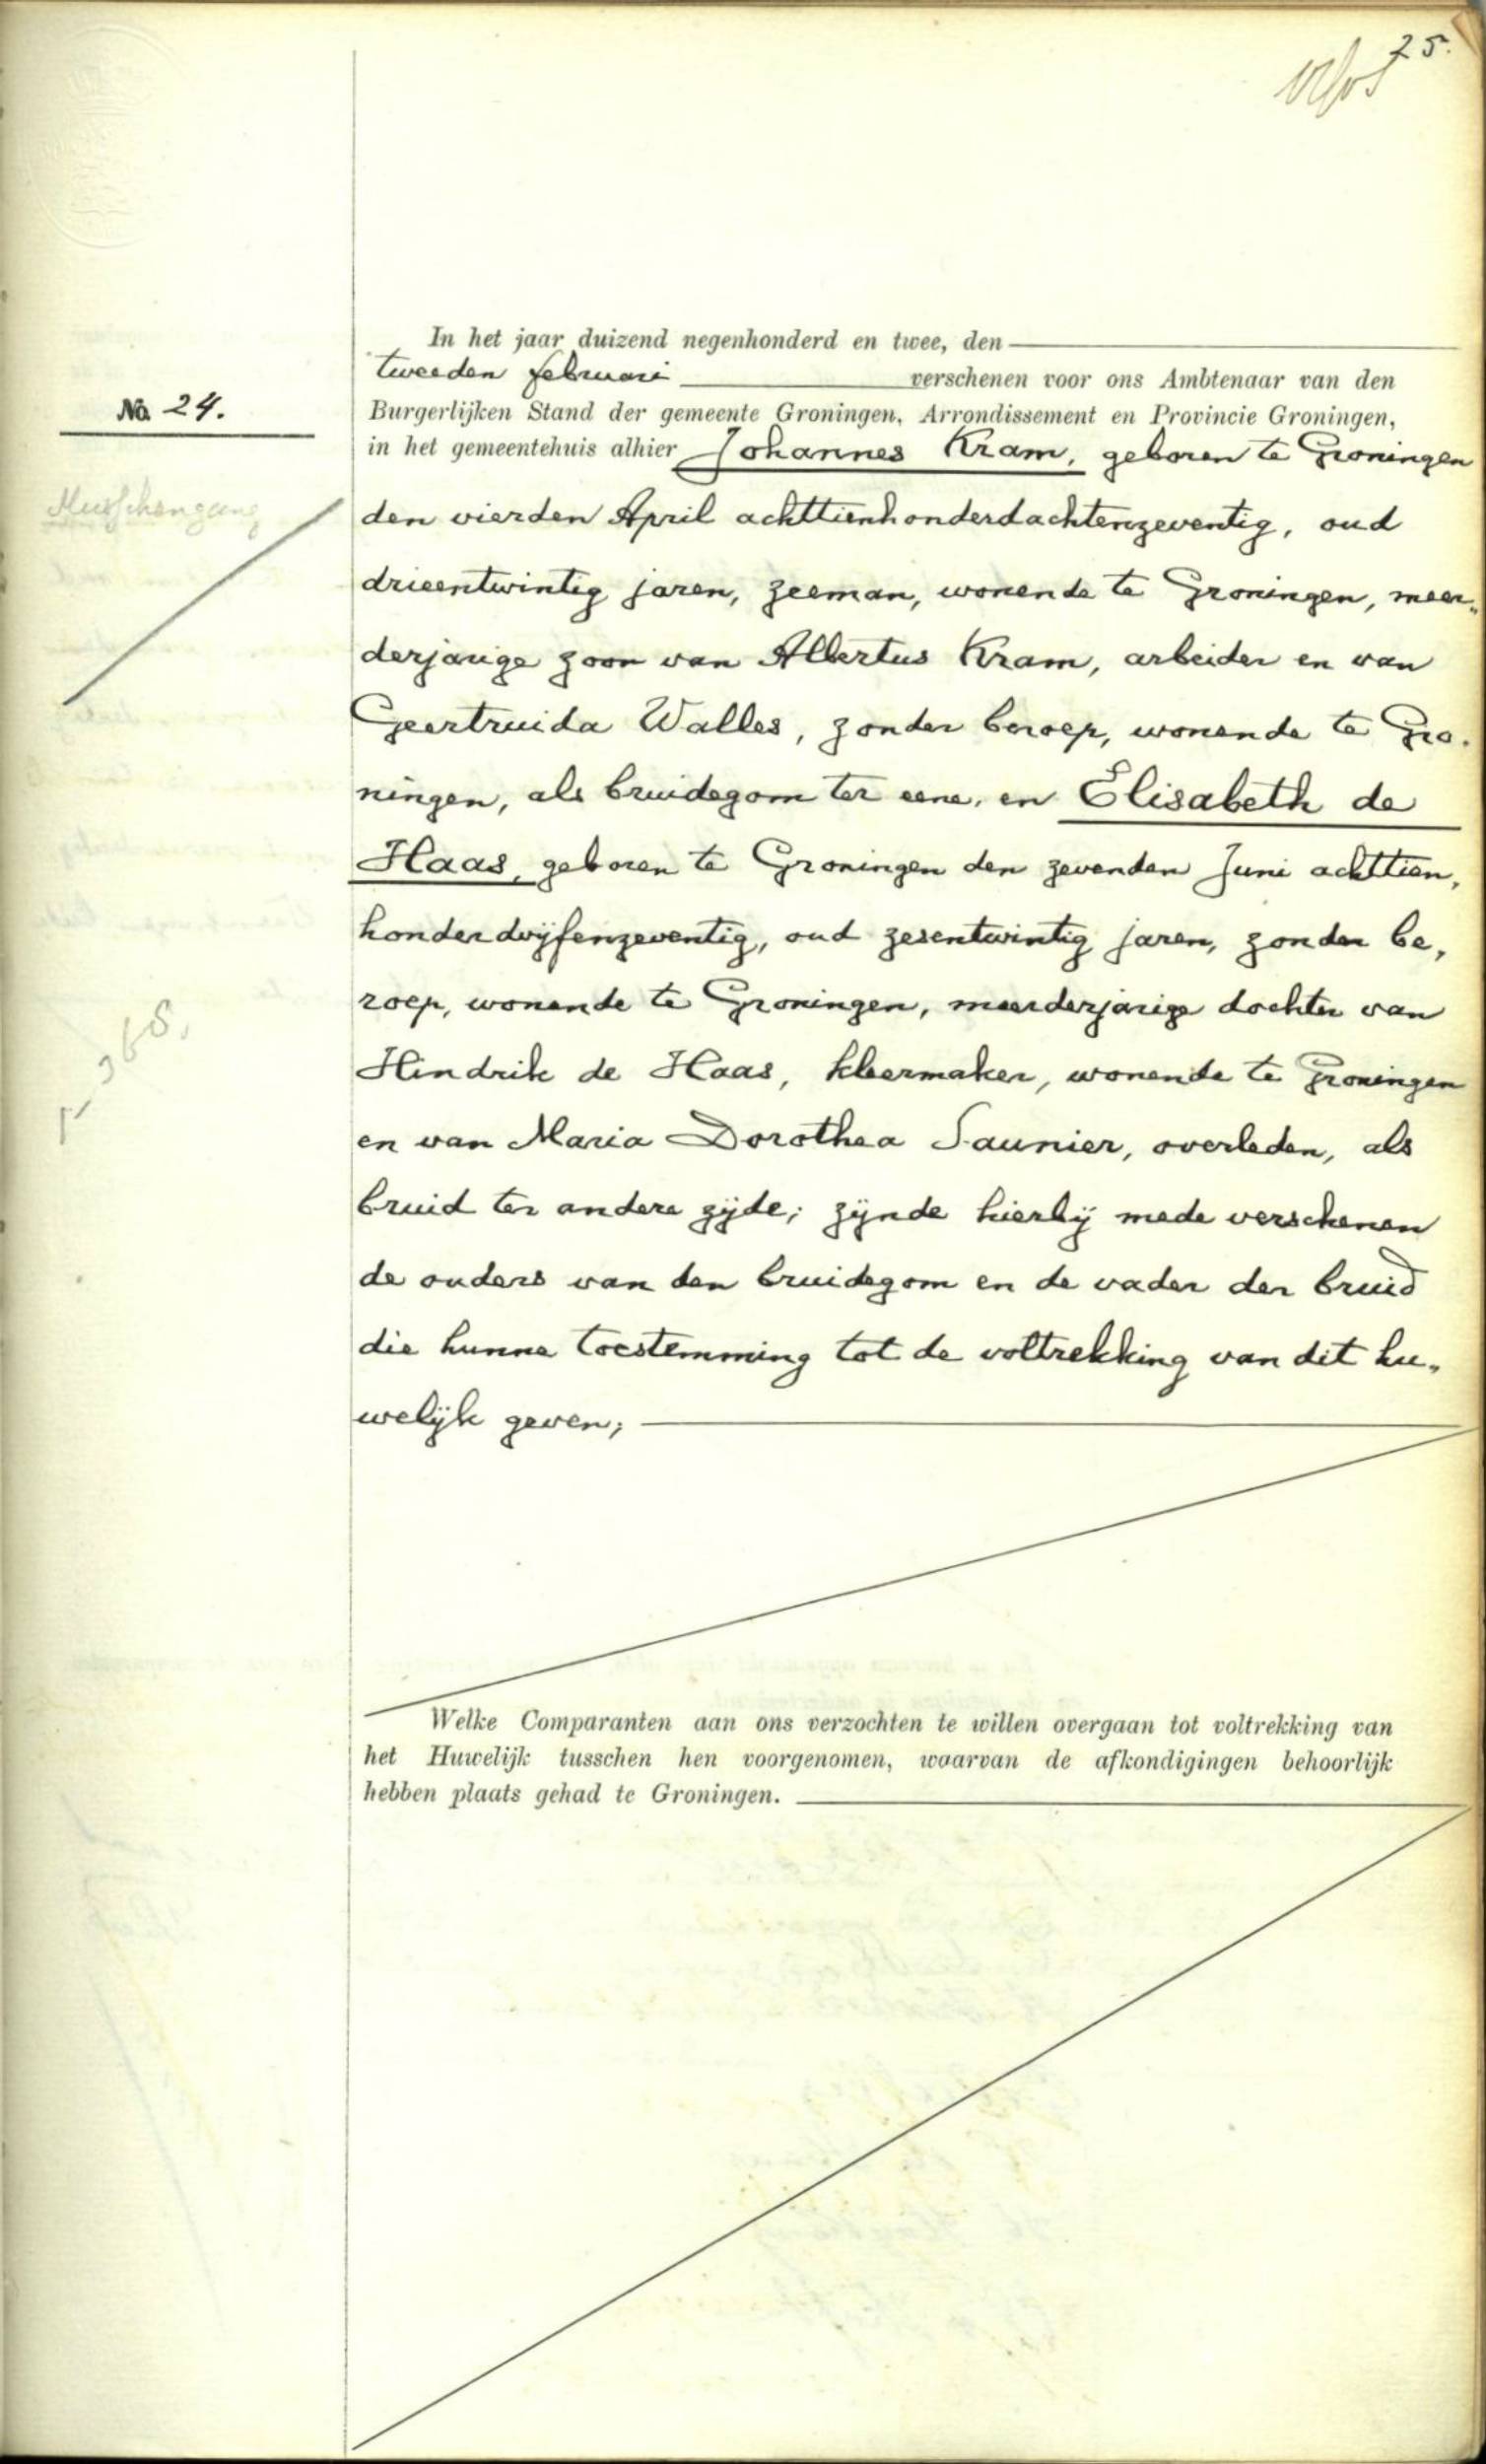 25.
In het jaar duizend negenhonderd en twee, den
tweeden februari verschenen voor ons Ambtenaar van den
No. 24.
Burgerlijken Stand der gemeente Groningen, Arrondissement en Provincie Groningen,
in het gemeentehuis alhier Johannes Kram, geboren te Groningen
Musschengang
den vierden April achttienhonderdachtenzeventig, oud
drieentwintig jaren, zeeman, wonende te Groningen, meer„
derjarige zoon van Albertus Kram, arbeider en van
Geertruida Walles, zonder beroep, wonende te Gro.
ningen, als bruidegom ter eene, en Elisabeth de
Haas, geboren te Groningen den zevenden Juni achttien,
honderdvijfenzeventig, oud zesentwintig jaren, zonder be,
roep, wonende te Groningen, meerderjarige dochter van
365.
Hindrik de Haas, kleermaker, wonende te Groningen
en van Maria Dorothea Saunier, overleden, als
bruid ter andere zijde; zijnde hierbij mede verschenen
de ouders van den bruidegom en de vader der bruid
die hunne toestemming tot de voltrekking van dit hu„
welijk geven;
Welke Comparanten aan ons verzochten te willen overgaan tot voltrekking van
het Huwelijk tusschen hen voorgenomen, waarvan de afkondigingen behoorlijk
hebben plaats gehad te Groningen.